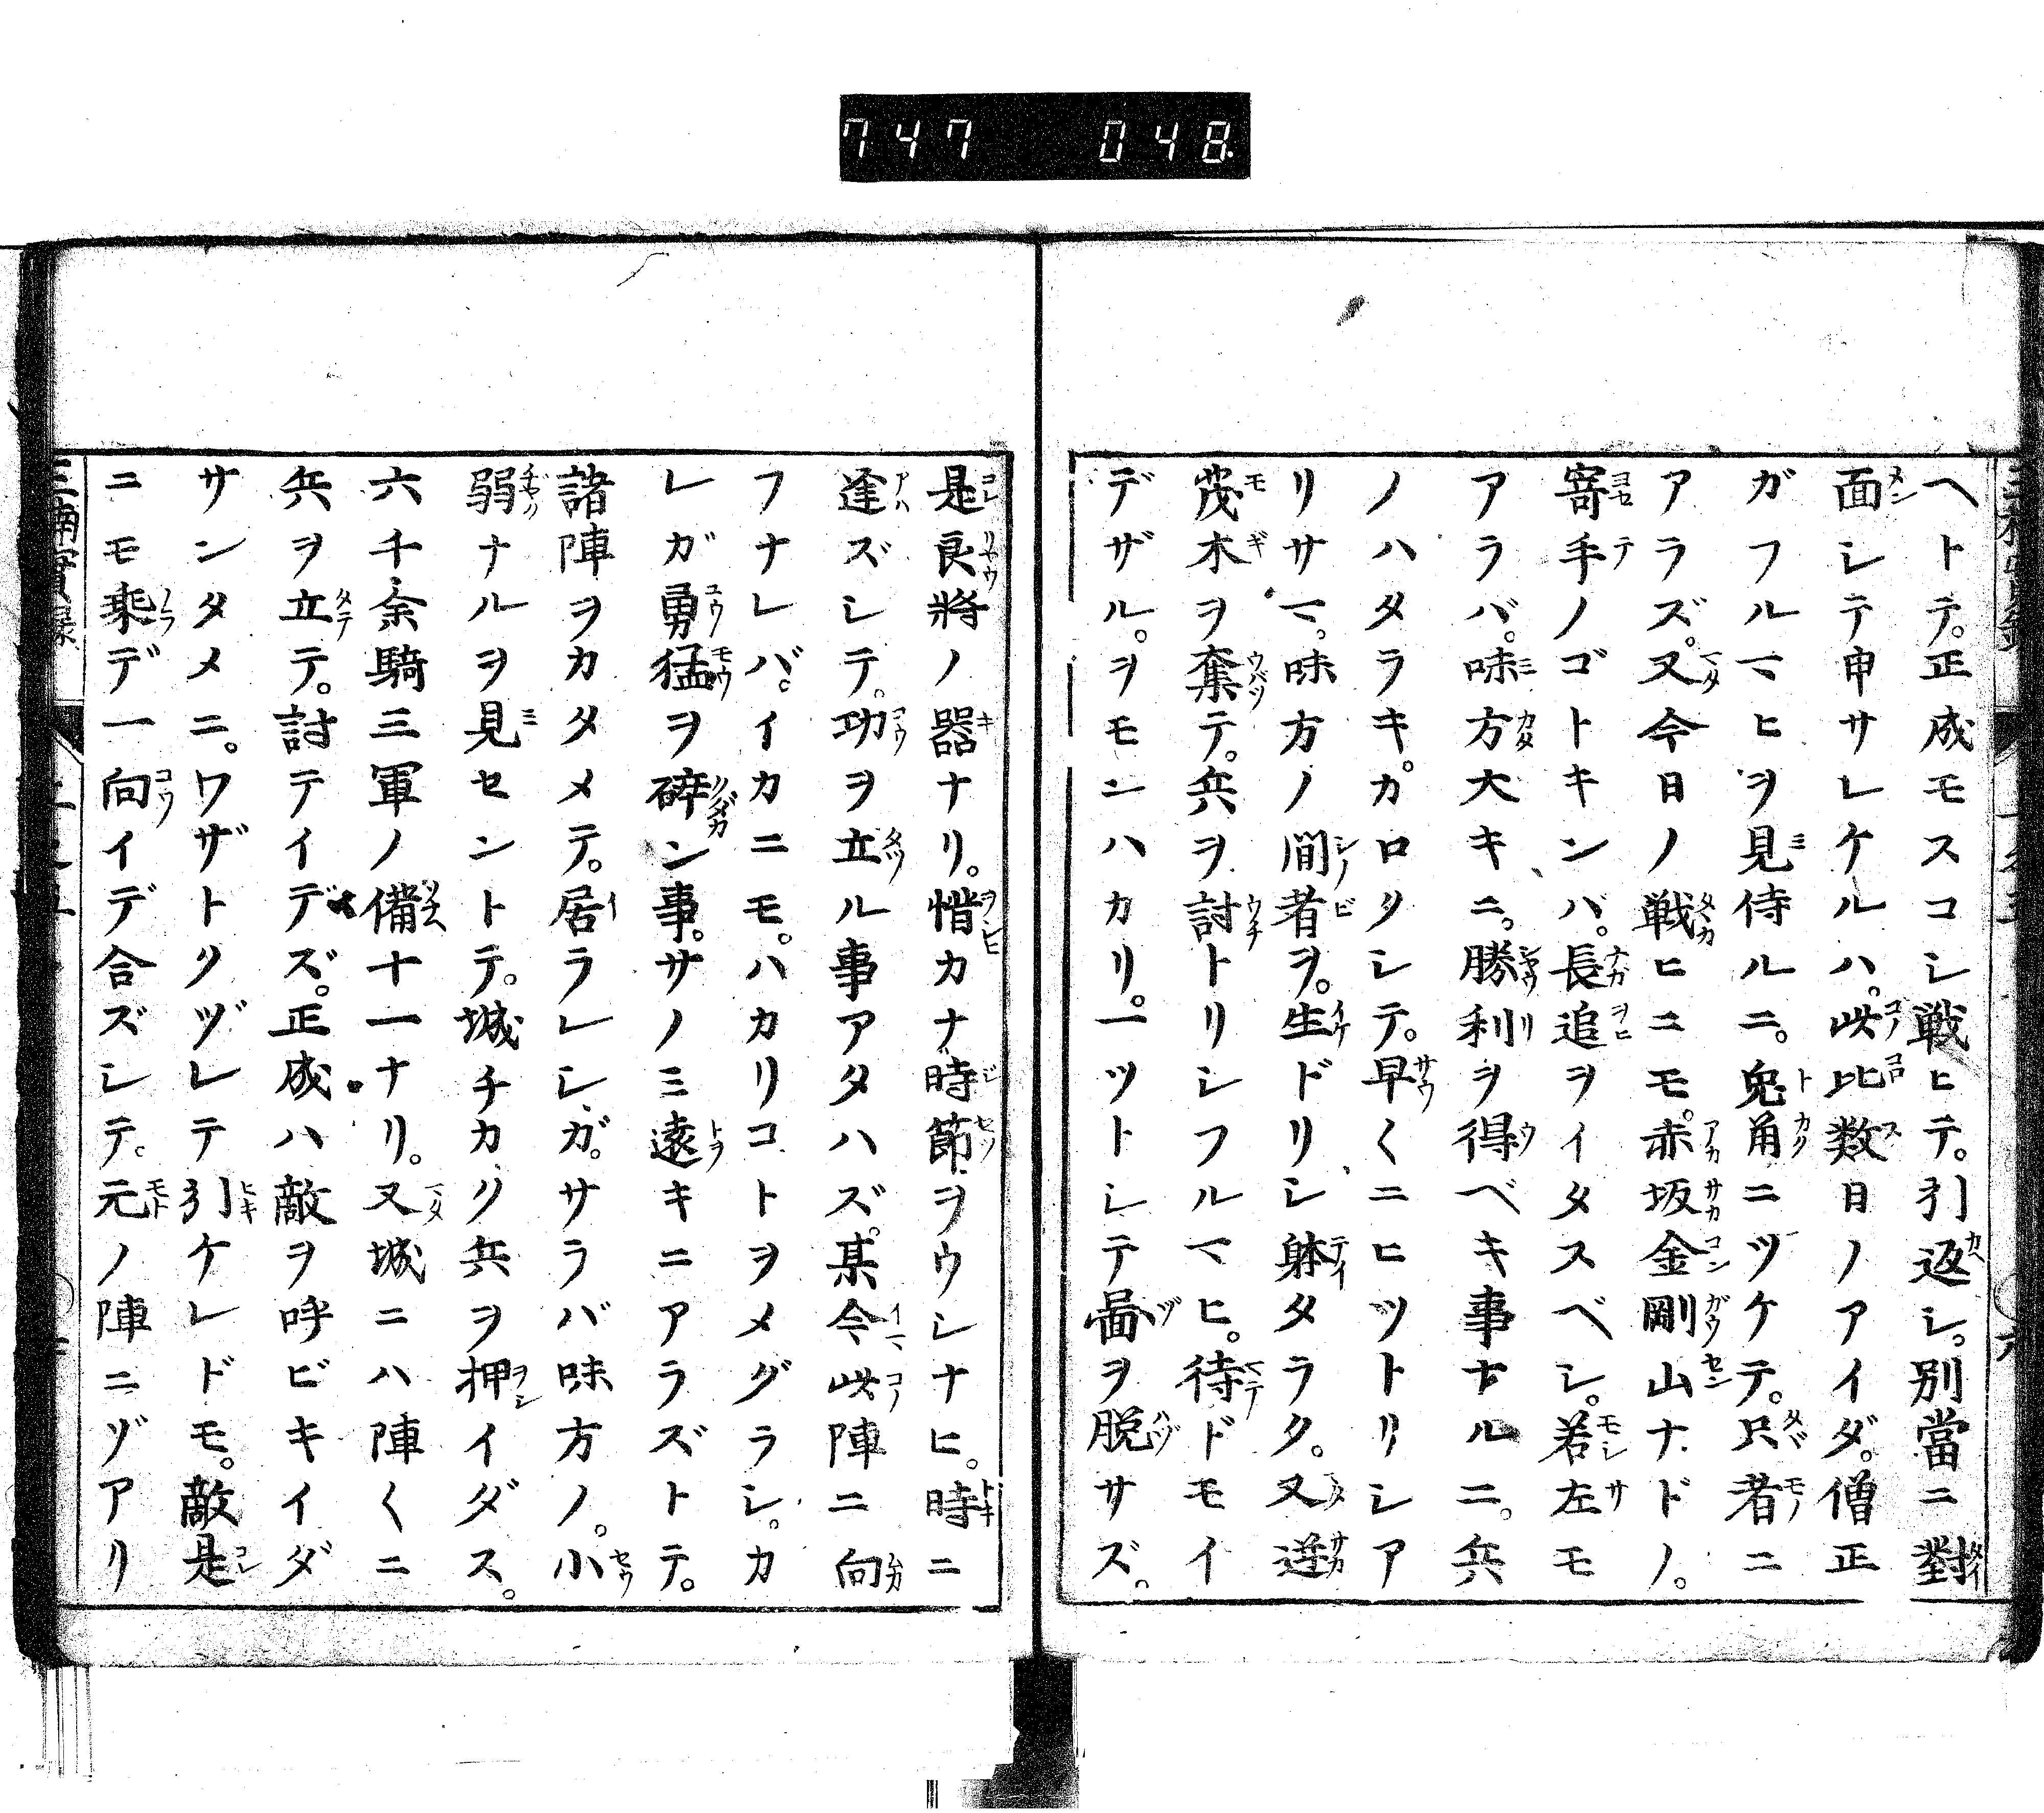 747 048
ヘトテ。正成モスコシ戦ヒテ。引返シ。別當ニ對
面シテ申サレケルハ。此比数日ノアイダ。僧正
ガフルマヒヲ見侍ルニ。兎角ニツケテ。只者ニ
アラズ。又今日ノ戦ヒニモ。赤坂金剛山ナドノ。
寄手ノゴトキンバ。長追ヲイタスベシ。若左モ
アラバ。味方大キニ。勝利ヲ得ベキ事ナルニ。兵
ノハタラキ。カロクシテ。早〱ニヒツトリシア
リサマ。味方ノ間者ヲ。生ドリシ躰タラク。又逆
茂木ヲ奪テ。兵ヲ討トリシフルマヒ。待ドモイ
デザル。ヲモンハカリ。一ツトシテ啚ヲ脱サズ。
是良將ノ器ナリ。惜カナ時節ヲウシナヒ。時ニ
逢ズシテ。功ヲ立ル事アタハズ。某今此陣ニ向
フナレバ。イカニモ。ハカリコトヲメグラシ。カ
レガ勇猛ヲ碎ン事。サノミ遠キニアラズトテ。
諸陣ヲカタメテ。居ラレシガ。サラバ味方ノ。小
弱ナルヲ見セントテ。城チカク兵ヲ押イダス。
六千余騎三軍ノ備十一ナリ。又城ニハ陣〱ニ
兵ヲ立テ。討テイデズ。正成ハ敵ヲ呼ビキイダ
サンタメニ。ワザトクヅレテ引ケレドモ。敵是
ニモ乘デ一向イデ合ズシテ。元ノ陣ニゾアリ